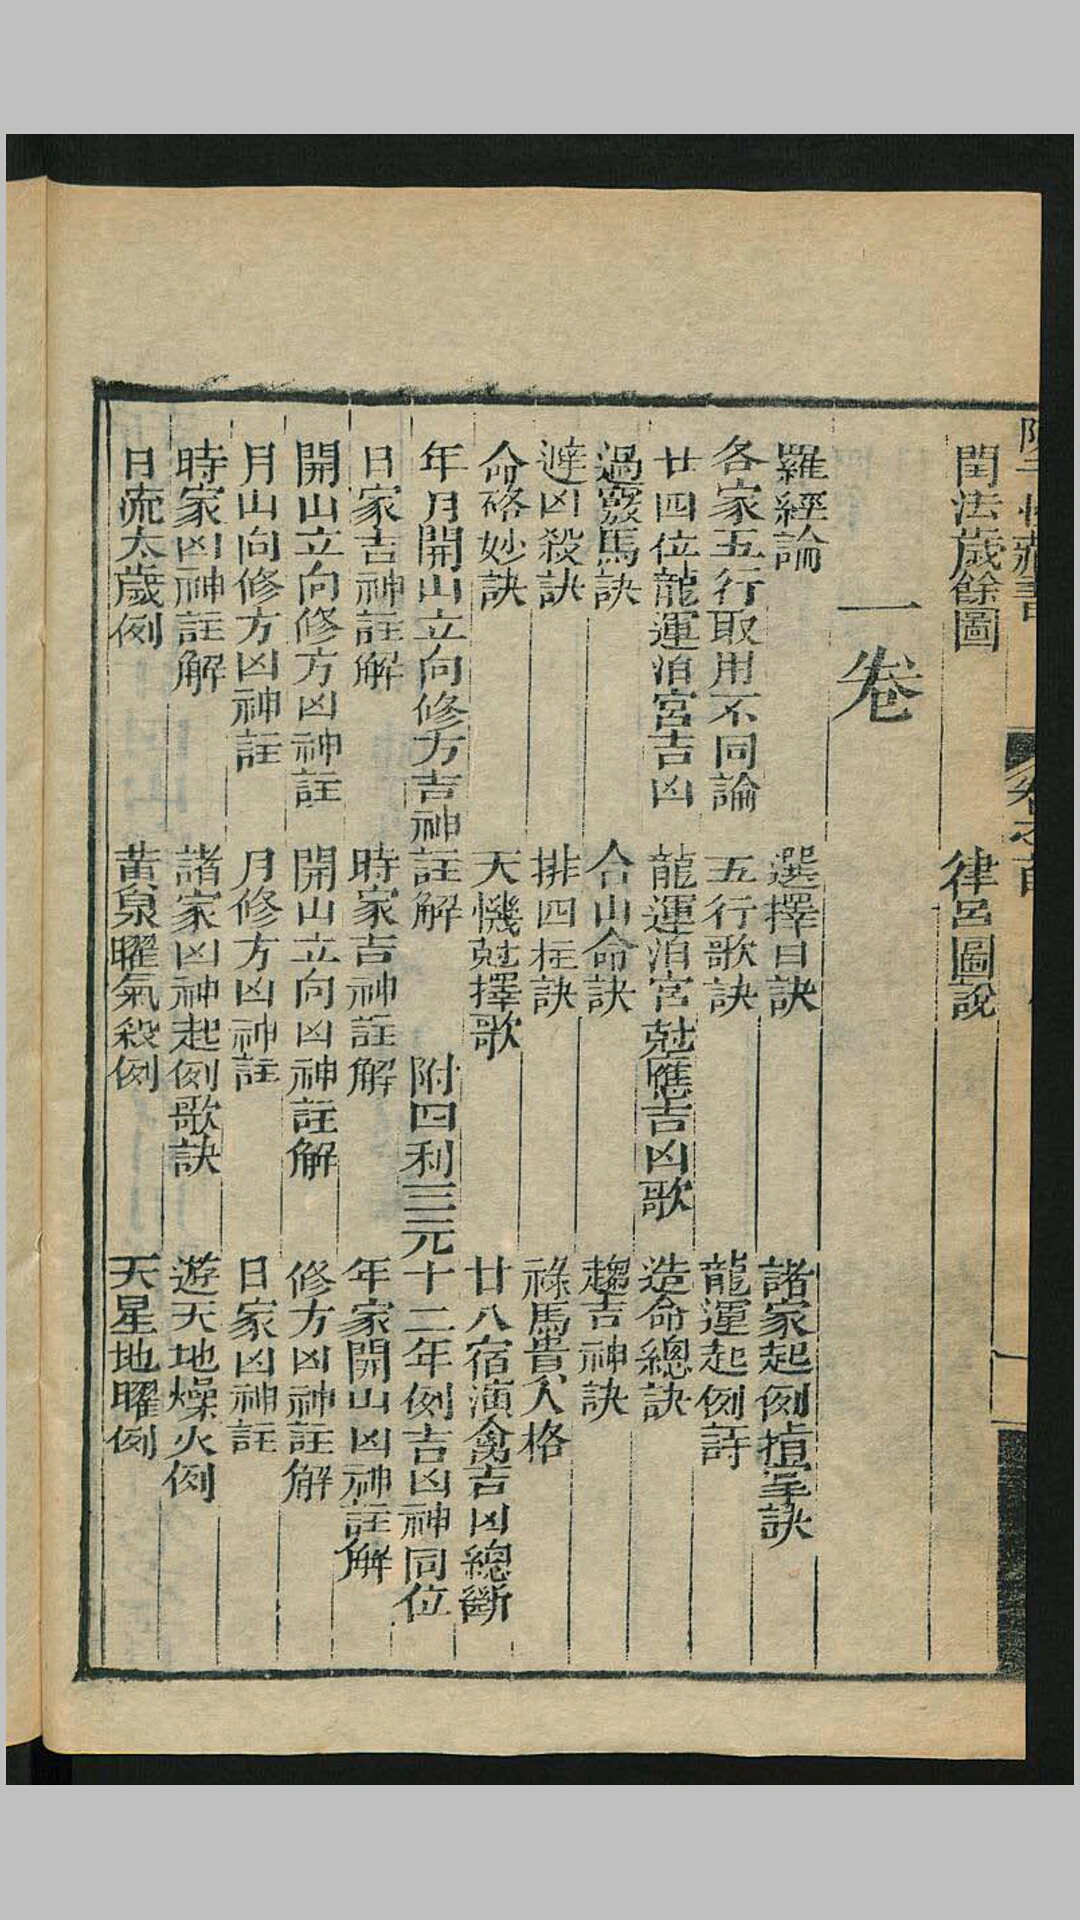 閏法歲餘圖　律呂圖說
一卷
羅經論　選擇日訣　諸家起例掌訣
各家五行取用不同論　五行歌訣　龍運起例詩
廿四位龍運泊宮吉凶　龍運泊宮尅應吉凶歌　造命總訣
過竅馬訣　合山命訣　趨吉神訣
避凶殺訣　排四柱訣　祿馬貴人格
命硌妙訣　天機尅擇歌　廿八宿演禽吉凶總斷
年月開山立向修方吉神註解　附四利三元十二年例吉凶神同位
日家吉神註解　時家吉神註解　年家開山凶神註解
開山立向修方凶神註　開山立向凶神註解　修方凶神註解
月山向修方凶神註　月修方凶神註　日家凶神註
時家凶神註解　諸家凶神起例歌訣　遊天地燥火例
日流太歲例　黃泉曜氣殺例　天星地曜例